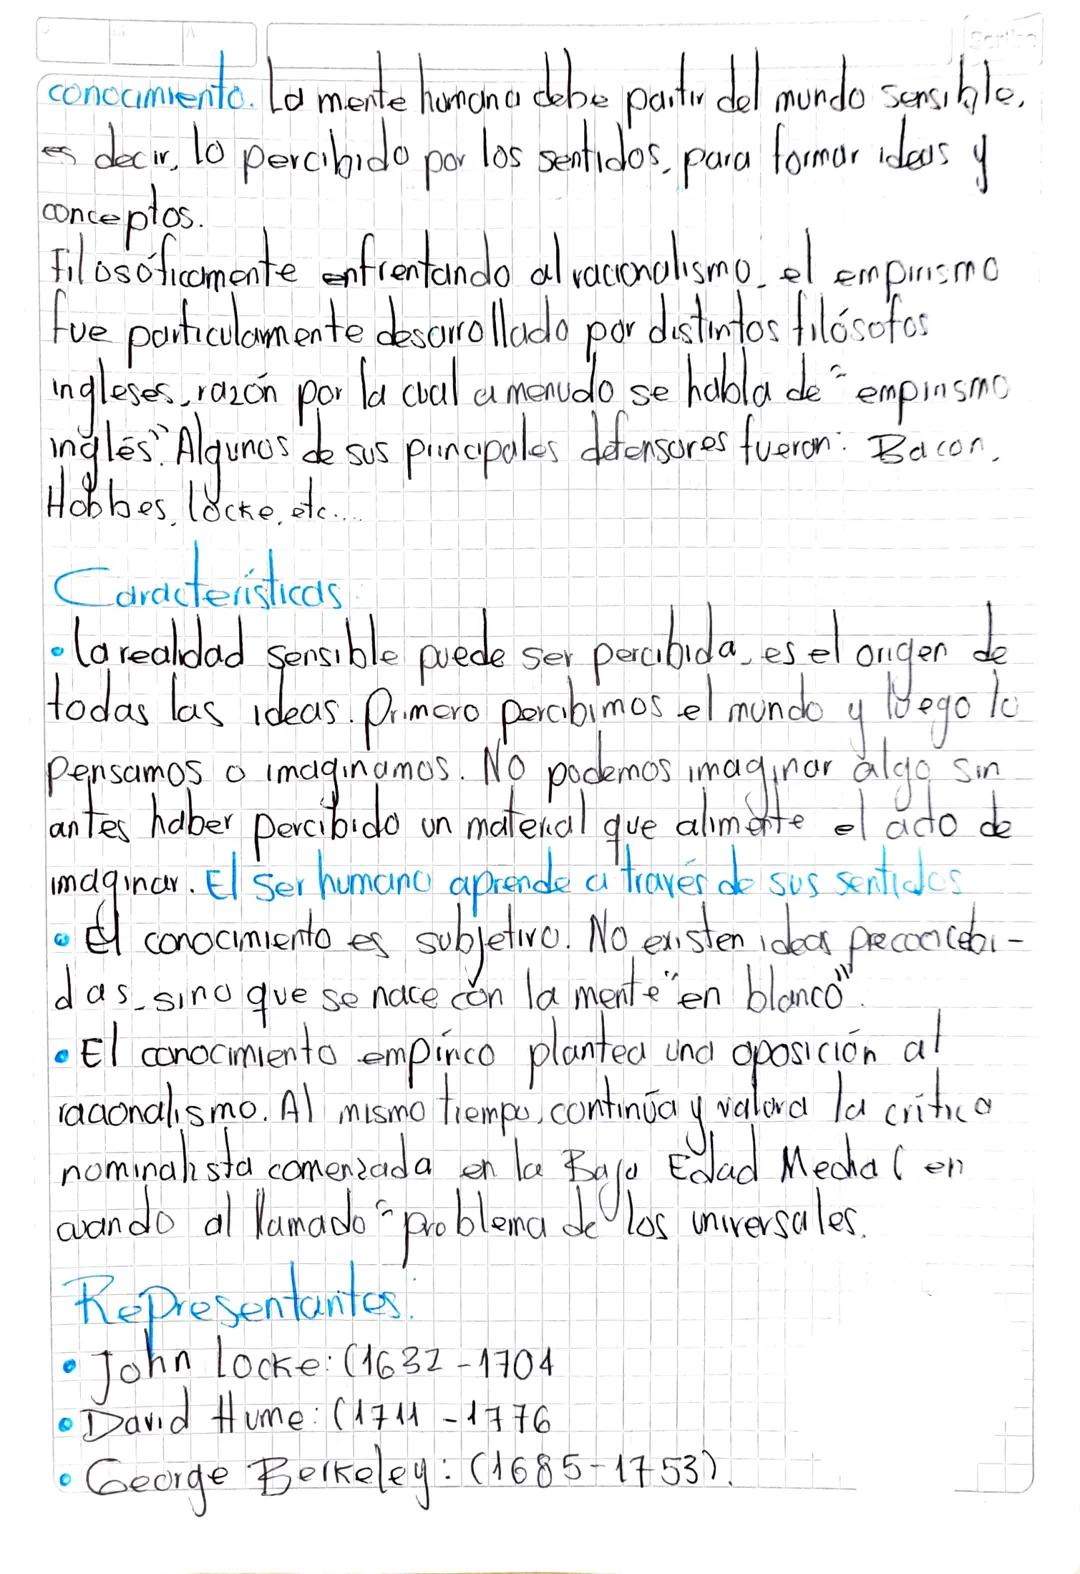 Scribe
conocimiento. La mente humana debe partir del mundo sensible,
es decir, lo percibido por los sentidos, para formar ideas y
conceptos.
Filosóficamente enfrentando al racionalismo, el empirismo
fue particularmente desarrollado por distintos filósofos
ingleses, razón por la cual a menudo se habla de "empirismo
inglés". Algunos de sus principales defensores fueron: Bacon,
Hobbes, Locke, etc....
Características:
• La realidad sensible puede ser percibida, es el origen de
todas las ideas. Primero percibimos el mundo y luego lo
pensamos o imaginamos. No podemos imaginar algo sin
antes haber percibido un material que alimente el acto de
imaginar. El ser humano aprende a través de sus sentidos
• El conocimiento es subjetivo. No existen ideas preconcebi-
das, sino que se nace con la mente "en blanco".
• El conocimiento empírico plantea una oposición al
racionalismo. Al mismo tiempo, continúa y valora la crítica
nominalista comenzada en la Baja Edad Media (en
cuando al llamado "problema de los universales.
Representantes:
• John Locke: (1632-1704
• David Hume: (1711-1776
• George Berkeley: (1685-1753).